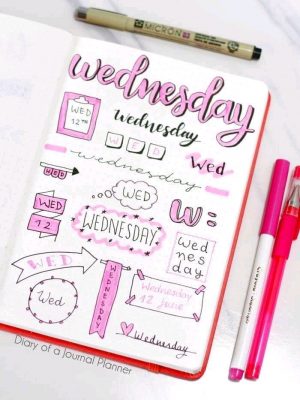 MICRON
wednesday
WED
12TH
Wednesday
WED
wednesday
Wed
WED
WED
W:
WED
12
WEDNESDAY
Wed
nes
day
WED
WEDNESDAY
Wednesday
12 June
Wed
Wednesday
Diary of a Journal Planner